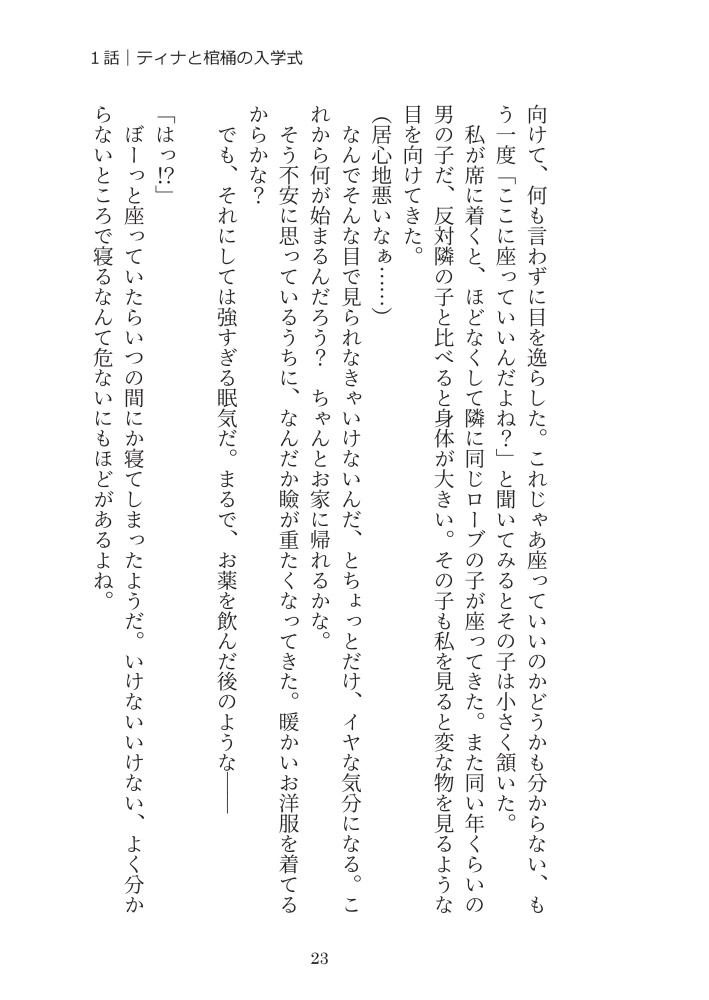 1話｜ティナと棺桶の入学式
向けて、何も言わずに目を逸らした。これじゃあ座っていいのかどうかも分からない、も
う一度「ここに座っていいんだよね？」と聞いてみるとその子は小さく頷いた。
　私が席に着くと、ほどなくして隣に同じローブの子が座ってきた。また同い年くらいの
男の子だ、反対隣の子と比べると身体が大きい。その子も私を見ると変な物を見るような
目を向けてきた。
（居心地悪いなぁ……）
　なんでそんな目で見られなきゃいけないんだ、とちょっとだけ、イヤな気分になる。こ
れから何が始まるんだろう？　ちゃんとお家に帰れるかな。
　そう不安に思っているうちに、なんだか瞼が重たくなってきた。暖かいお洋服を着てる
からかな？
　でも、それにしては強すぎる眠気だ。まるで、お薬を飲んだ後のような――
「はっ!?」
　ぼーっと座っていたらいつの間にか寝てしまったようだ。いけないいけない、よく分か
らないところで寝るなんて危ないにもほどがあるよね。
23